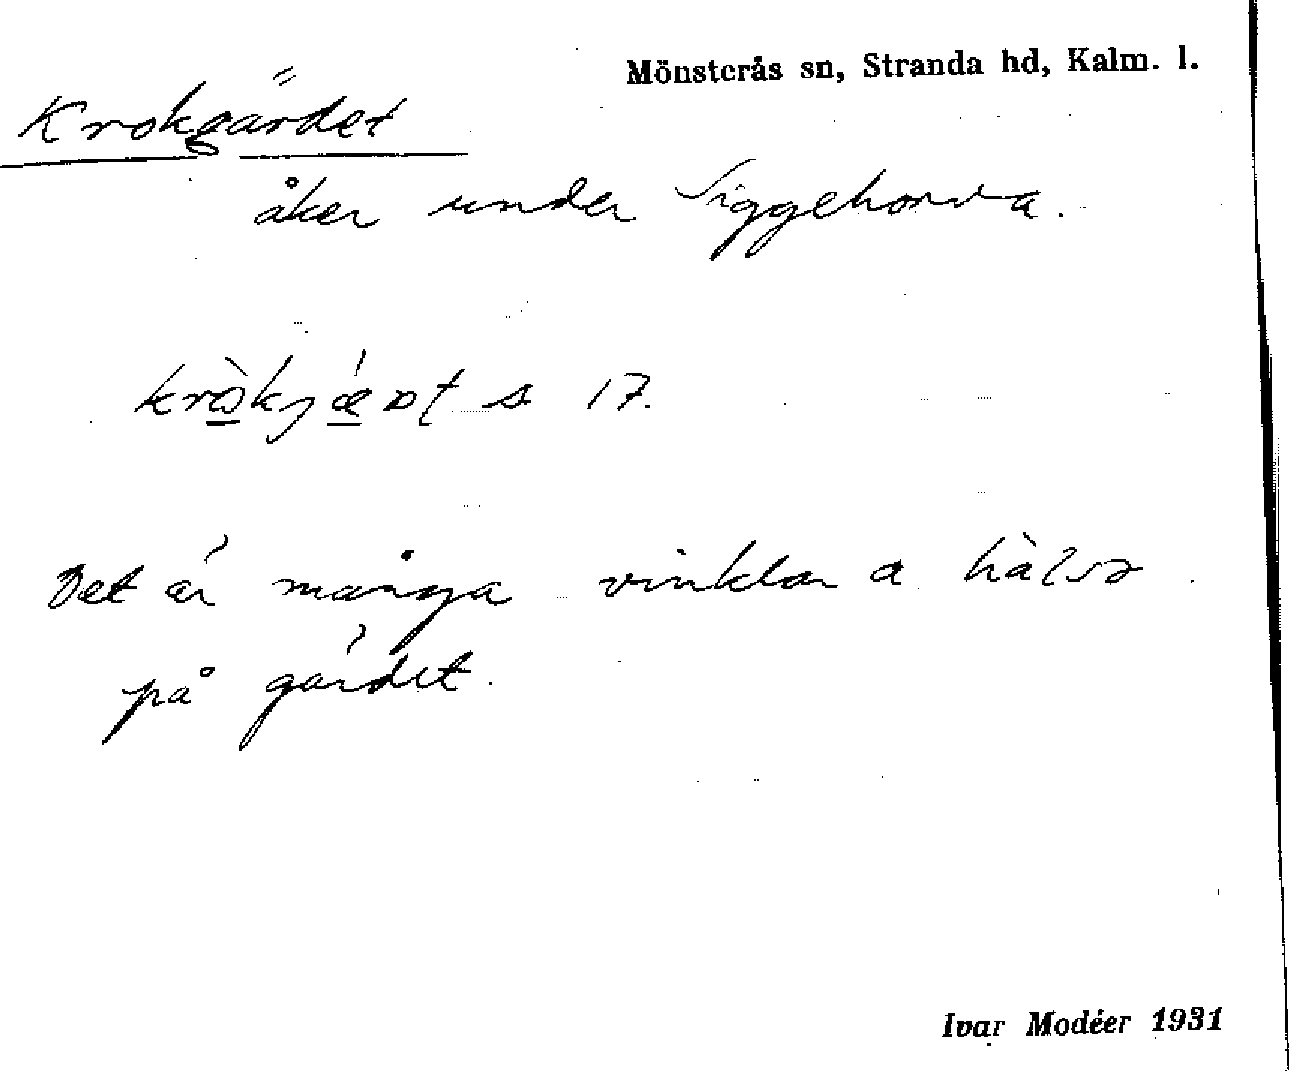 Mönsterås sn, Stranda hd, Kalm. l.
Krokgärdet
åker under Siggehorva.
s 17.
Det är många vinklar a
på gärdet.
Ivar Modéer 1931